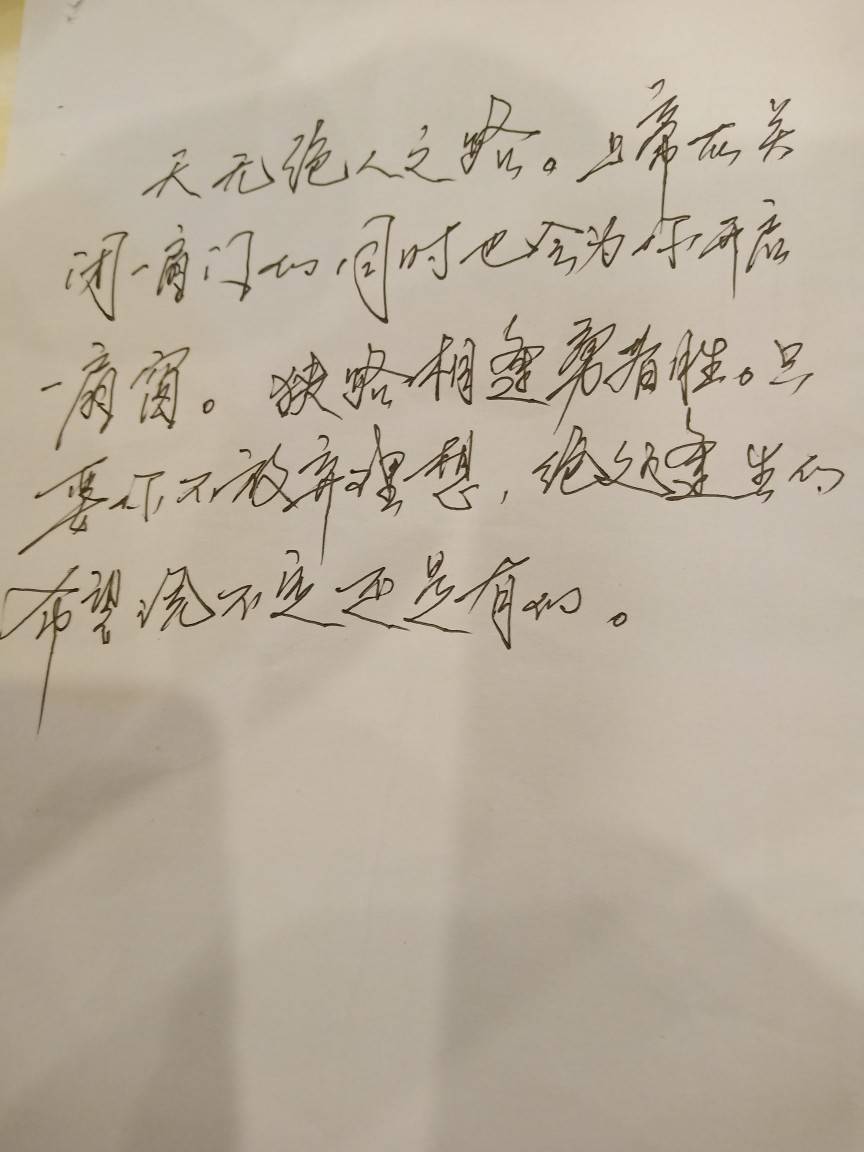 天无绝人之路。上帝在关
闭一扇门的同时也会为你开启
一扇窗。狭路相逢勇者胜。只
要你不放弃理想，绝处逢生的
希望说不定还是有的。